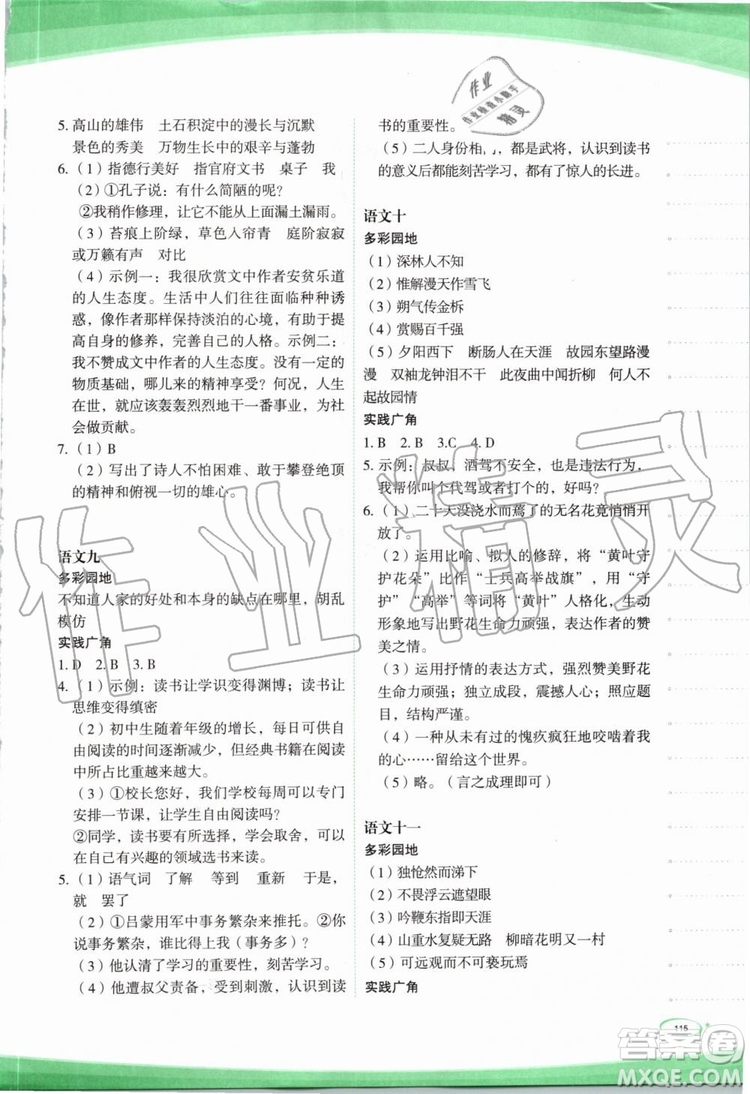 5. 高山的雄伟　土石积淀中的漫长与沉默
景色的秀美　万物生长中的艰辛与蓬勃
6. （1）指德行美好　指官府文书　桌子　我
（2）①孔子说：有什么简陋的呢？
②我稍作修理，让它不漏从上面漏土漏雨。
（3）苔痕上阶绿，草色入帘青　庭阶寂寂
或万籁有声　对比
（4）示例一：我很欣赏文中作者安贫乐道
的人生态度。生活中人们往往有种种诱
惑，像作者那样保持淡泊的心境，有利于提
高自身的修养，完善自己的人格。示例二：
我不赞成文中作者的人生态度。没有一定的
物质基础，哪儿来的精神享受？何况，人生
在世，就应该轰轰烈烈地干一番事业，为社
会做贡献。
7. （1）B
（2）写出了诗人不怕困难、敢于攀登绝顶
的精神和俯视一切的雄心。
语文九
多彩园地
不知道人家的好处和本身的缺点在哪里，胡乱
模仿
实践广角
1. D　2. B　3. B
4. （1）示例：读书让学识变得渊博；读书让
思维变得缜密
（2）初中生随着年级的增长，每日可供自
由阅读的时间逐渐减少，但经典书籍在阅读
中所占比重越来越大。
（3）①校长您好，我们学校每周可以专门
安排一节课，让学生自由阅读吗？
②同学，读书要有所选择，学会取舍，可以
在自己有兴趣的领域选书来读。
5. （1）语气词　了解　等到　重新　于是，
就　罢了
（2）①吕蒙用军中事务繁杂来推托。②你
说事务繁杂，谁比得上我（事务多）？
（3）他认清了学习的重要性，刻苦学习。
（4）他遭叔父责备，受到刺激，认识到读
书的重要性。
（5）二人身份相，都为武将，认识到读书
的意义后都能刻苦学习，都有了惊人的长进。
语文十
多彩园地
（1）深林人不知
（2）惟解漫天作雪飞
（3）朔气传金柝
（4）赏赐百千强
（5）夕阳西下　断肠人在天涯　故园东望路漫
漫　双袖龙钟泪不干　此夜曲中闻折柳　何人不
起故园情
实践广角
1. B　2. B　3.C　4. D
5. 示例：叔叔，酒驾不安全，也是违法行为，
我帮你叫个代驾或者打个的，好吗？
6. （1）二十天没浇水而蔫了的无名花竟悄悄开
放了。
（2）运用比喻、拟人的修辞，将“黄叶守
护花朵”比作“士兵高举战旗”，用“守
护”“高举”等词将“黄叶”人格化，生动
形象地写出野花生命力顽强，表达作者的赞
美之情。
（3）运用抒情的表达方式，强烈赞美野花
生命力顽强；独立成段，震撼人心；照应题
目，结构严谨。
（4）一种从未有过的愧疚疯狂地咬啮着我
的心……留给这个世界。
（5）略。（言之成理即可）
语文十一
多彩园地
（1）独怆然而涕下
（2）不畏浮云遮望眼
（3）吟鞭东指即天涯
（4）山重水复疑无路　柳暗花明又一村
（5）可远观而不可亵玩焉
实践广角
115
作业
作业检查小助手
精灵
作业精灵
答案圈
MXQE.COM